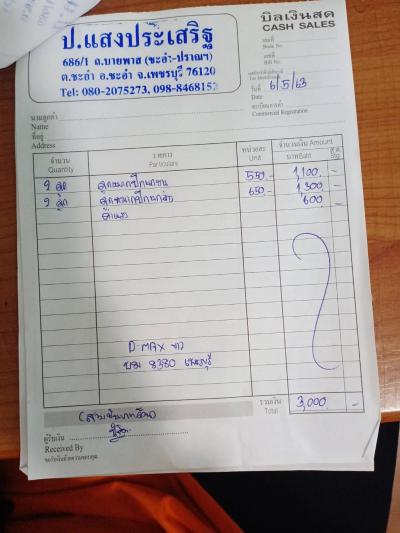 บิลเงินสด
CASH SALES
ป.แสงประเสริฐ
686/1 ถ.บายพาส (ชะอำ-ปราณฯ)
ต.ชะอำ อ.ชะอำ จ.เพชรบุรี 76120
Tel: 080-2075273, 098-8468152
เล่มที่
Book No.
เลขที่
Bill No.
วันที่ 6/5/63
Date
ทะเบียนการค้า
Commercial Registration
นามลูกค้า
Name
ที่อยู่
Address
จำนวน รายการ หน่วยละ จำนวนเงิน Amount
Quantity Particulars Unit บาท Baht
2 ลูก ลูกหมากปีกนกบน 550 - 1,100 -
2 ลูก ลูกหมากปีกนกล่าง 650 - 1,300 -
ค่าแรง 600 -
D-MAX ขาว
8380 เพชรบุรี
รวมเงิน
Total 3,000 -
(สามพันบาทถ้วน)
ผู้รับเงิน
Received By